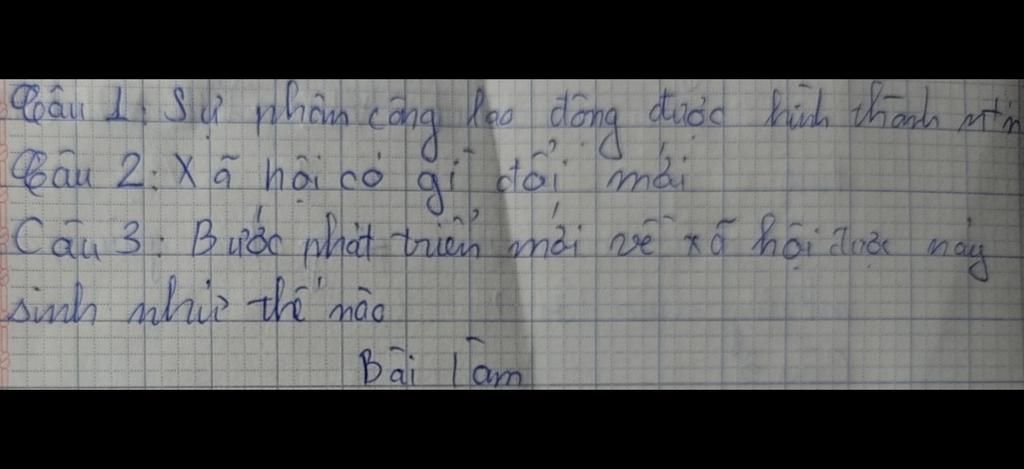 Câu 1: Sự phân công lao động được hình thành ntn
Câu 2: Xã hội có gì đổi mới
Câu 3: Bước phát triển mới về xã hội được nảy
sinh như thế nào
Bài làm